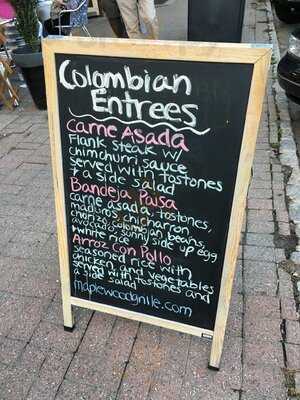 Colombian
Entrees
Carne Asada
Flank steak w/
chimichurri sauce
served with tostones
+ a side salad
Bandeja Paisa
carne asada, tostones,
maduros, chicharron,
chorizo, colombian beans,
avocado, sunny side up egg
white rice
Arroz Con Pollo
seasoned rice with
chicken and vegetables
served with tostones and
a side salad
maplewoodgrille.com